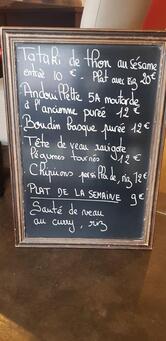 Tataki de thon au sésame
entrée 10 € - Plat avec riz 20€
Andouillette 5A moutarde
à l'ancienne purée 12 €
Boudin basque purée 12 €
Tête de veau ravigote
légumes tournés 12 €
Chipirons persillade, riz 12 €
PLAT DE LA SEMAINE 9 €
Sauté de veau
au curry, riz